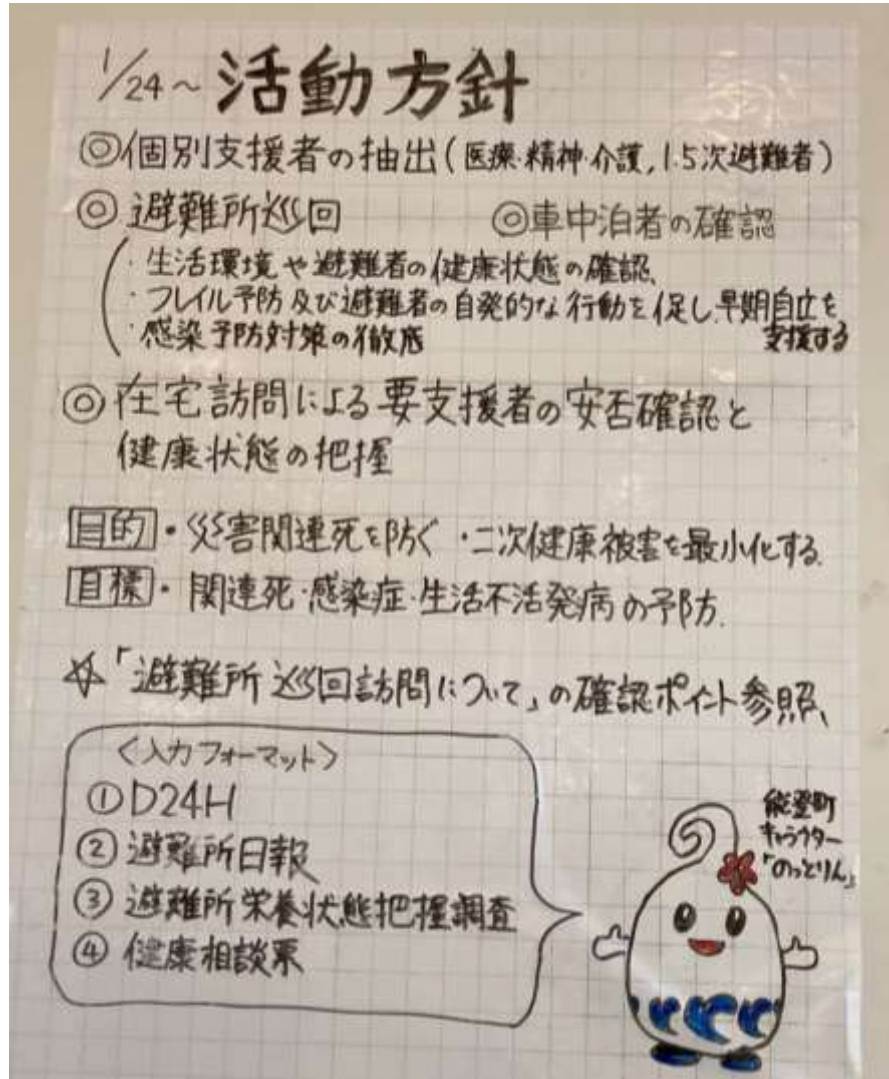 1/24~ 活動方針
◎個別支援者の抽出(医療・精神・介護,1.5次避難者)
◎避難所巡回 ◎車中泊者の確認
・生活環境や避難者の健康状態の確認、
・フレイル予防及び避難者の自発的な行動を促し早期自立を
支援する
・感染予防対策の徹底
◎在宅訪問による要支援者の安否確認と
健康状態の把握
目的・災害関連死を防ぐ ・二次健康被害を最小化する
目標・関連死・感染症・生活不活発病の予防.
☆「避難所巡回訪問について」の確認ポイント参照、
<入力フォーマット>
①D24H
②避難所日報
③避難所栄養状態把握調査
④健康相談票
能登町
キャラクター
「のっとりん」